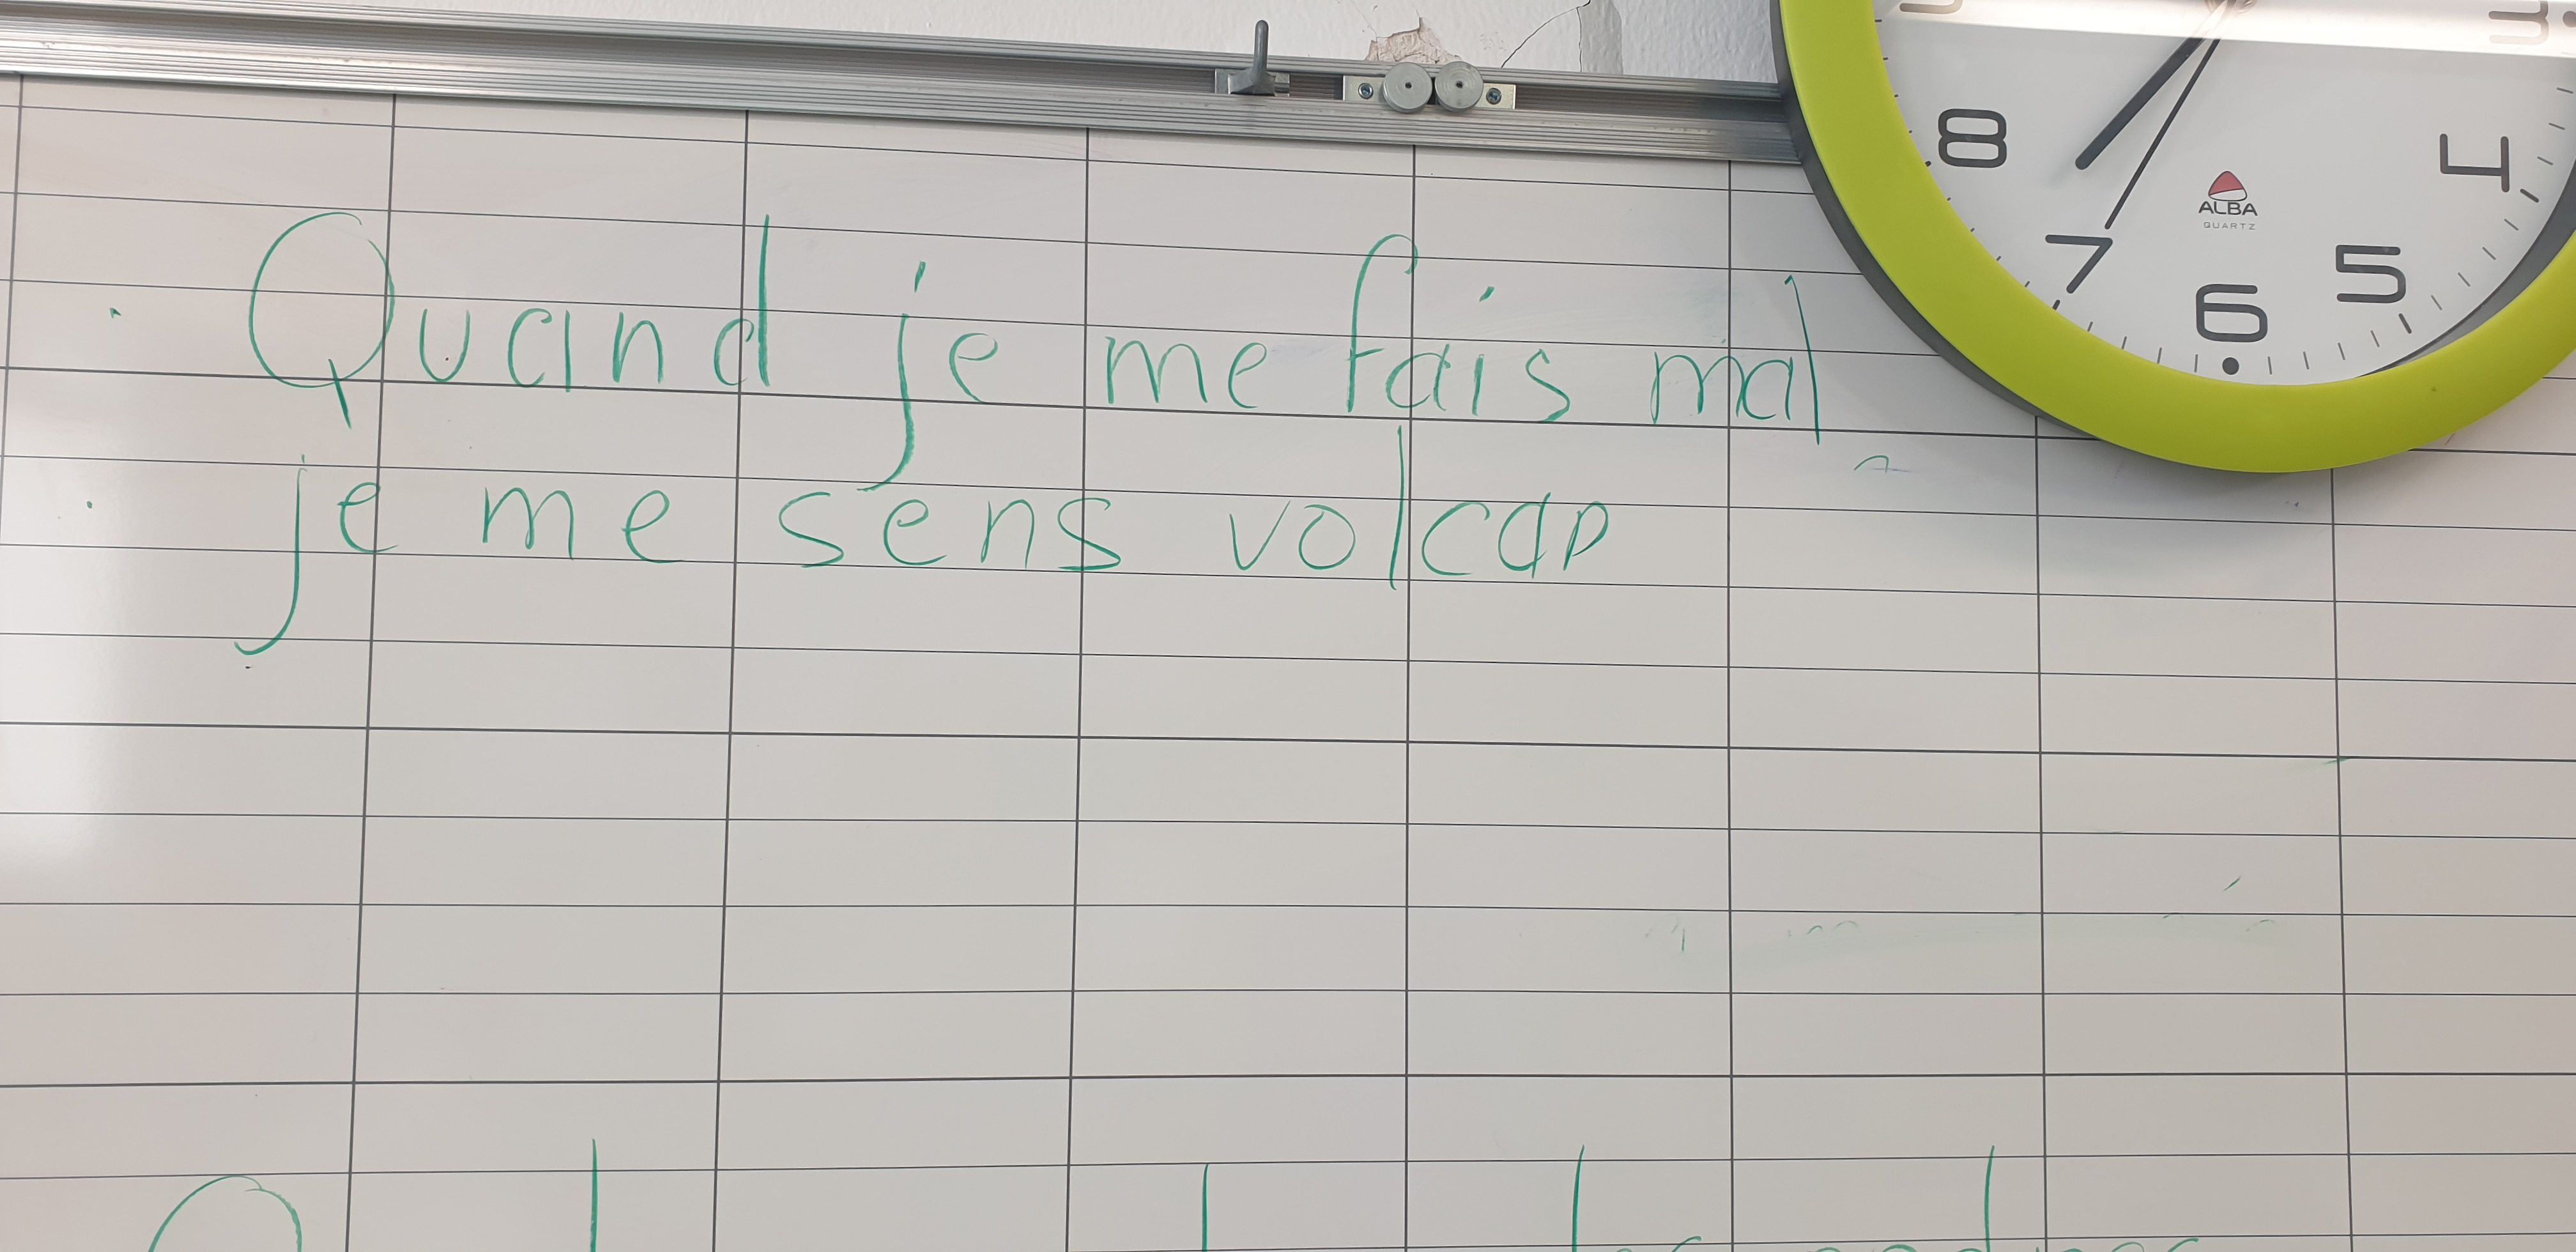 Quand je me fais mal
je me sens volcan
8
7
6
5
4
3
ALBA
QUARTZ